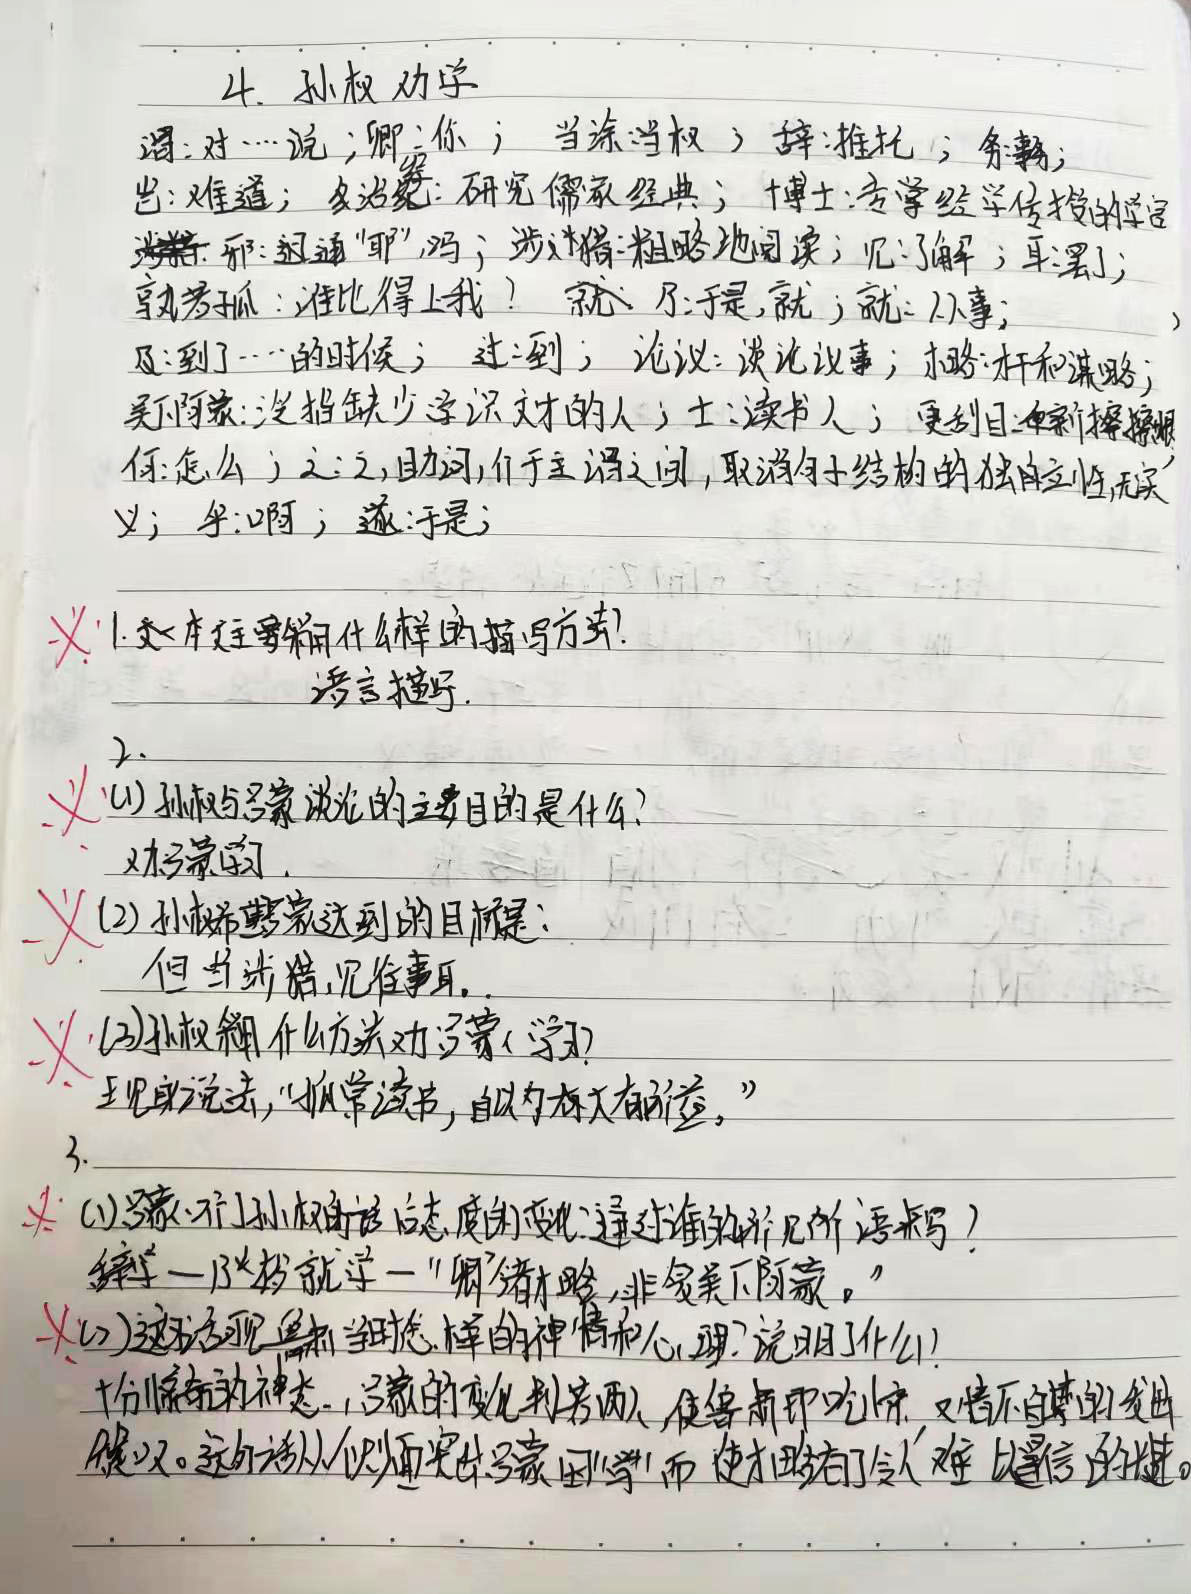 4. 孙权劝学
谓:对……说;卿:你; 当涂:当权; 辞:推托; 务:事务;
岂:难道; 治经:研究儒家经典; 博士:专掌经学传授的学官
邪:通“耶”,吗; 涉猎:粗略地阅读; 见:了解; 耳:罢了;
孰若孤:谁比得上我? 乃:于是,就; 就:从事;
及:到了……的时候; 过:到; 论议:谈论议事; 才略:才干和谋略;
吴下阿蒙:没指缺少学识文才的人; 士:读书人; 更刮目:重新擦擦眼
何:怎么; 之:之,助词,介于主谓之间,取消句子结构的独立性,无实
义; 乎:啊; 遂:于是;
1. 本文主要采用什么样的描写方法?
语言描写.
2.
(1) 孙权与吕蒙谈论的主要目的是什么?
劝吕蒙学习.
(2) 孙权希望吕蒙达到的目标是:
但当涉猎,见往事耳。
(3) 孙权采用什么方法劝吕蒙学习?
现身说法,“孤常读书,自以为大有所益。”
3.
(1) 吕蒙听了孙权的话后态度的变化:通过谁的所见所语来写?
辞学—乃始就学—“卿今者才略,非复吴下阿蒙。”
(2) 这句话可见鲁肃当时怎样的神情和心理?说明了什么?
十分惊奇的神态,吕蒙的变化判若两人,使鲁肃即吃惊又情不自禁的发出
赞叹。这句话从侧面突出吕蒙因“学”而使才略有了令人难以置信的长进。